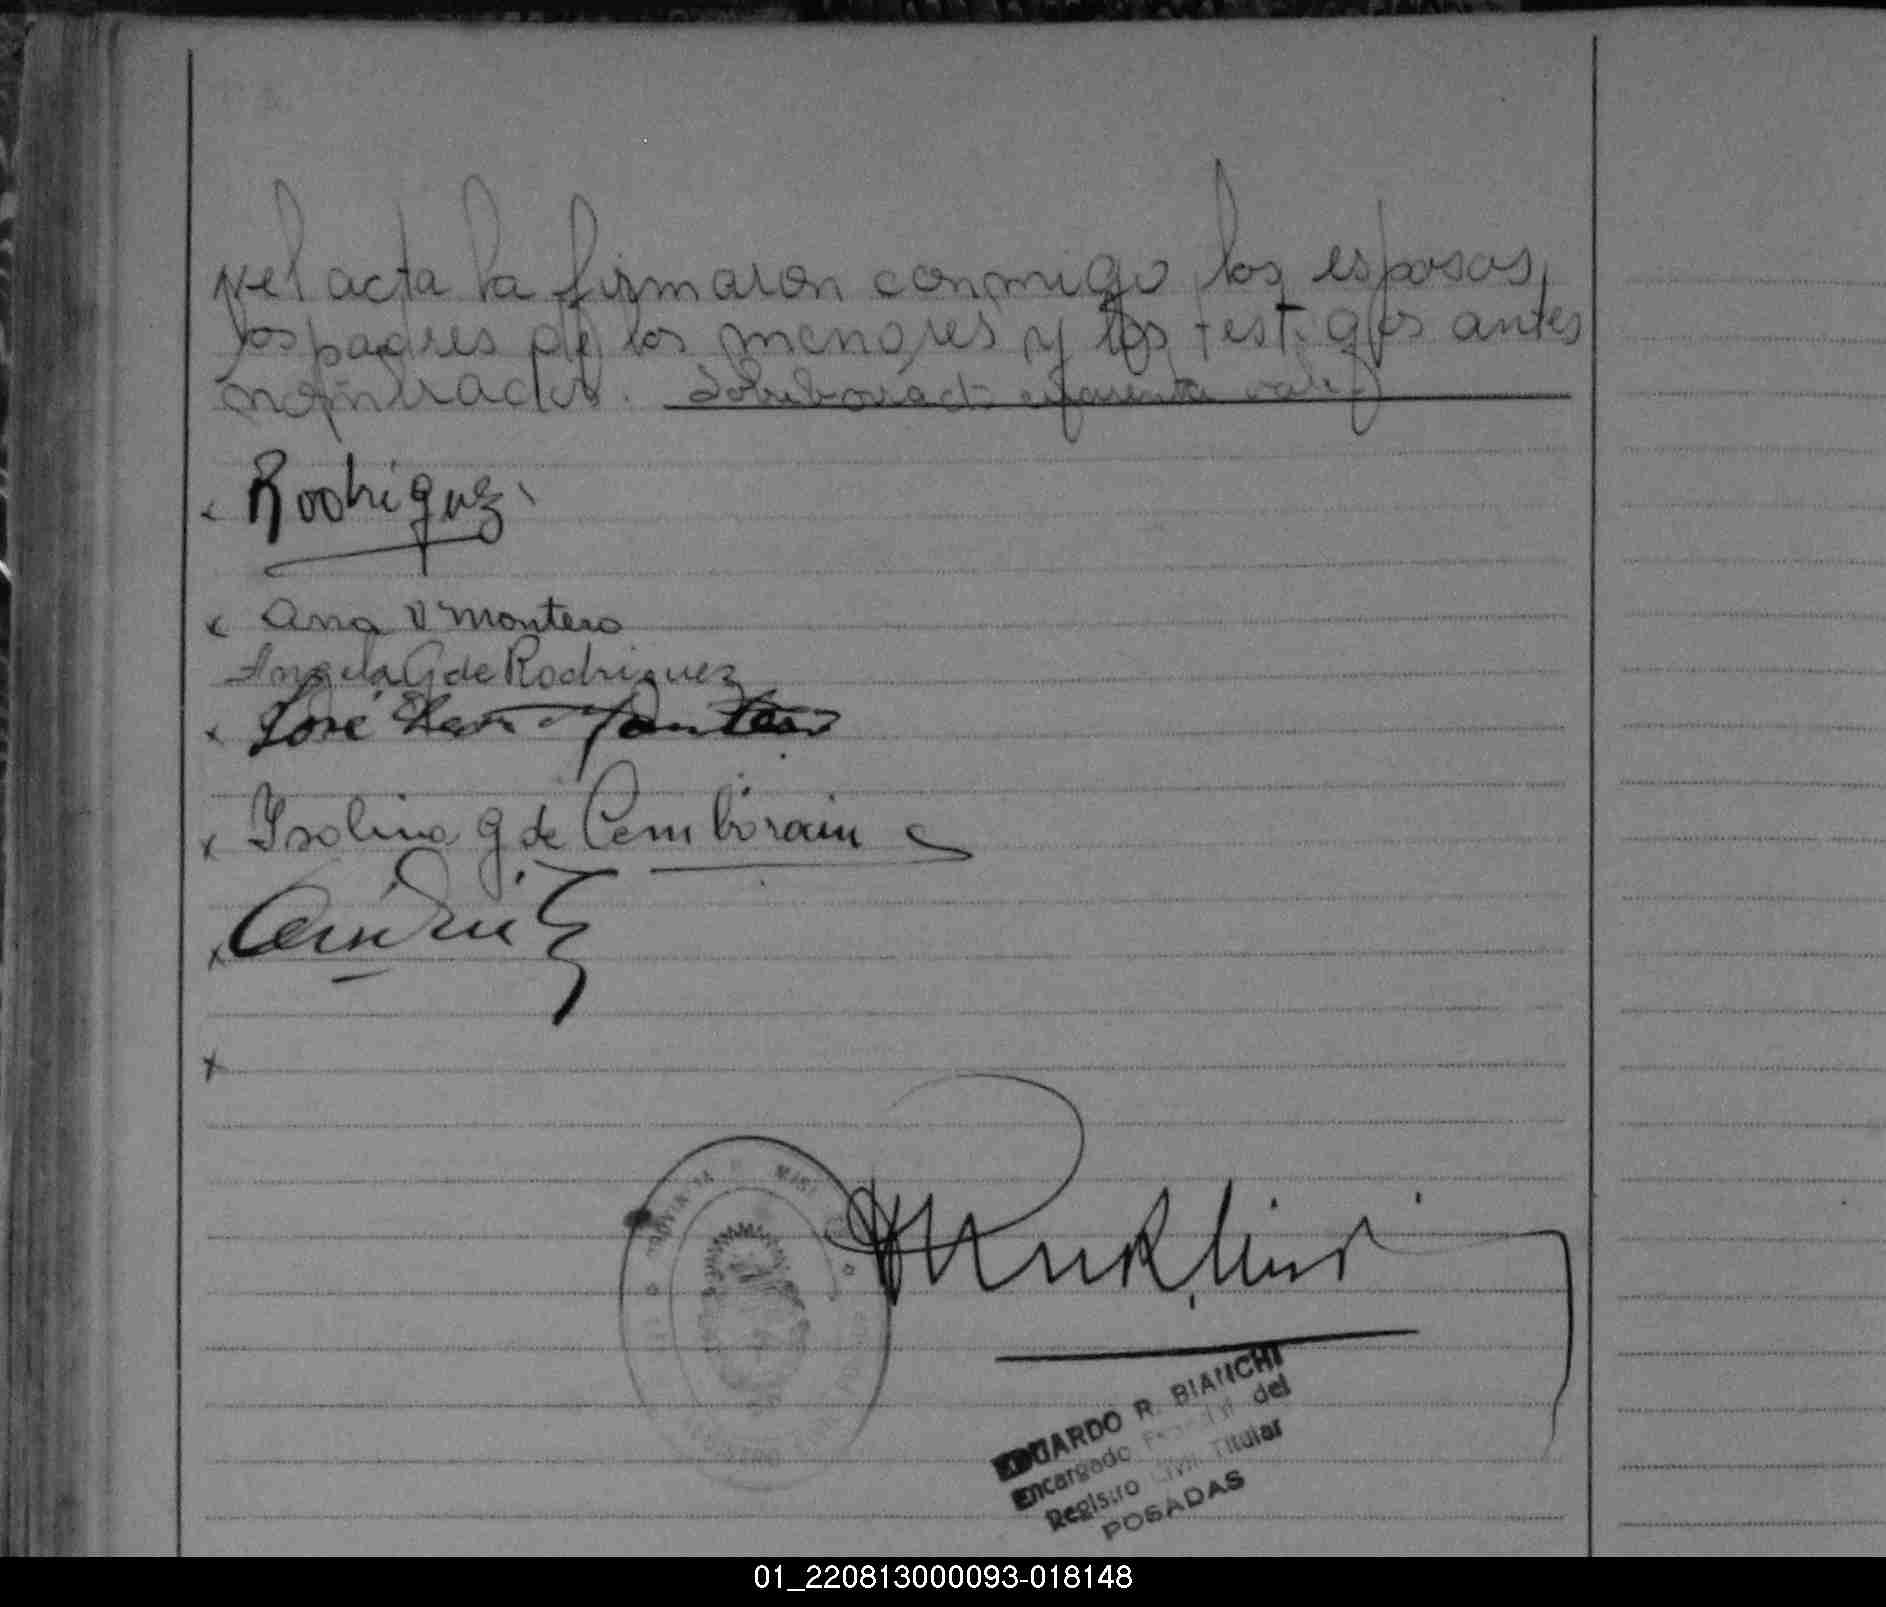 el acta la firmaron conmigo los esposos,
los padres de los menores y los testigos antes
nombrados. Sobreborrado cuarenta vale
Rodriguez
Ana V Montero
Angela G de Rodriguez
José Montero
Isolina G de Cemborain
EDUARDO R. BIANCHI
Encargado del
Registro Civil Titular
POSADAS
REGISTRO
01_220813000093-018148